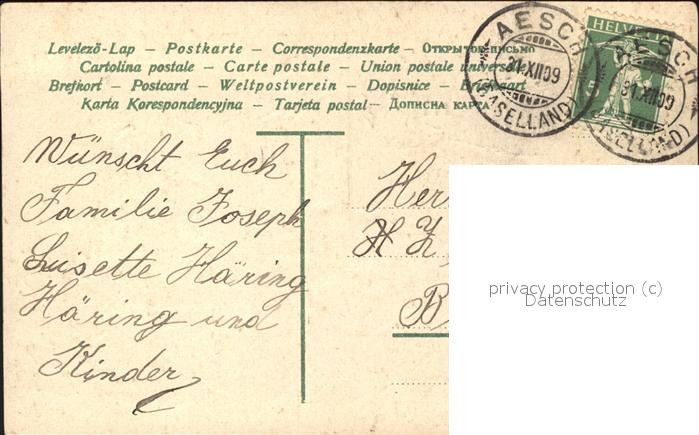 Levelező-Lap – Postkarte – Correspondenzkarte – Открытое письмо
Cartolina postale – Carte postale – Union postale universelle
Brefkort – Postcard – Weltpostverein – Dopisnice – Briefkaart
Karta Korespondencyjna – Tarjeta postal – Дописна карта
AESCH
31.XII.09
(BASELLAND)
HELVETIA
AESCH
31.XII.09
(BASELLAND)
Wünscht Euch
Familie Joseph
Lisette Häring
Häring und
Kinder
Her
H Z
B
privacy protection (c)
Datenschutz